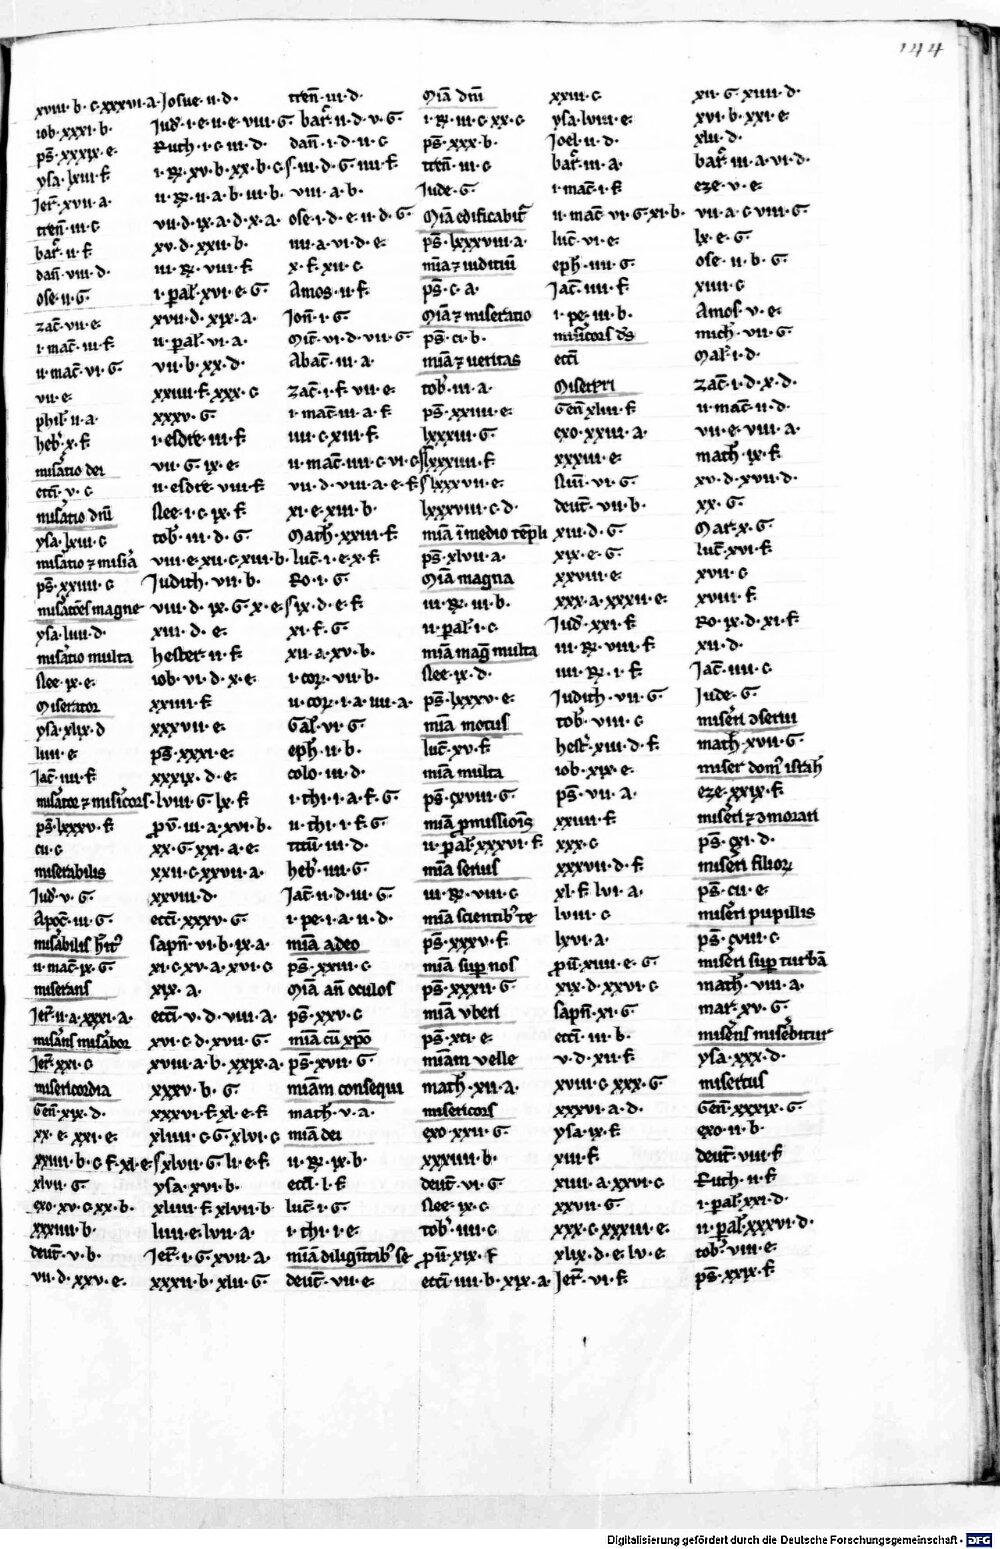 144
xviii·b·c·xxxvi·a·
iob·xxxi·b·
ps̄·xxxix·e·
ysa·lxiii·f
Jer̄·xvii·a·
tren̄·iii·c
bar̄·ii·f
dan̄·viii·d·
ose·ii·G·
zac̄·vii·e·
i·mac̄·iii·f
ii·mac̄·vi·G·
vii·e·
phil̄·ii·a·
heb̄·x·f
mis̄atio dei
ecc̄i·v·c
mis̄atio dn̄i
ysa·lxiii·c
mis̄atio ⁊ mis̄ia
ps̄·xxiiii·c
mis̄atōēs magne
ysa·liiii·d·
mis̄atio multa
Nee·ix·e·
Miserator
ysa·xlix·d
liiii·e·
Jac̄·iiii·f
mis̄ator ⁊ mis̄icors·
ps̄·lxxxv·f
cii·c
miserabilis
Jud̄·v·G·
Apoc̄·iii·G
mis̄abilis
ii·mac̄·ix·G·
miserans
Jer̄·ii·a·xxxi·a·
mis̄ans mis̄abor
Jer̄·xxi·c
misericordia
Gen̄·xix·d·
xx·e·xxi·e·
xxiiii·b·c·f·xl·e·
xlvii·G
exo·xv·c·xx·b·
xxxiiii·b·
deut̄·v·b·
vii·d·xxv·e·
Josue·ii·d·
Jud̄·i·e·ii·e·viii·G·
Ruth·i·c·iii·d·
i·R̄·xv·b·xx·b·c
ii·R̄·ii·a·b·iii·b·
vii·d·ix·a·d·x·a·
xv·d·xxii·b·
iii·R̄·viii·f
i·pal̄·xvi·e·G·
xvii·d·xix·a·
ii·pal̄·vi·a·
vii·b·xx·d·
xxiiii·f·xxx·c
xxxv·G·
i·esdre·iii·f
vii·G·ix·e·
ii·esdre·viii·f
Nee·i·c·ix·f
tob̄·iii·d·G·
viii·e·xii·c·xiii·b·
Judith·vii·b·
viii·d·ix·G·x·e·
xiii·d·e·
hester·ii·f
iob·vi·d·x·e·
xxiiii·f
xxxvii·e·
ps̄·xxxi·e·
xxxix·d·e·
lviii·G·lx·f
pū·iii·a·xvi·b·
xx·G·xxi·a·e·
xxii·c·xxvii·a·
xxviii·d·
ecc̄i·xxxv·G
sapn̄·vi·b·ix·a·
xi·c·xv·a·xvi·c
xix·a·
ecc̄i·v·d·viii·a·
xvi·c·d·xvii·G·
xviii·a·b·xxix·a·
xxxv·b·G·
xxxvi·f·xl·e·f
xliiii·c·G·xlvi·c
xlvii·G·li·e·f
ysa·xvi·b·
xliiii·f·xlvii·b
liiii·e·lvii·a·
Jer̄·i·G·xvii·a·
xxxii·b·xlii·G
tren̄·iii·d·
bar̄·ii·d·v·G·
dan̄·i·d·ii·c
iii·d·G·iiii·f
viii·a·b·
ose·i·d·e·ii·d·G·
iiii·a·vi·d·e·
x·f·xii·c
Amos·ii·f
Jon̄·i·G·
Mic̄·vi·d·vii·G·
Abac̄·iii·a·
zac̄·i·f·vii·e·
i·mac̄·iii·a·f
iiii·c·xiii·f
ii·mac̄·iiii·c·vi·c
vii·d·viii·a·e·f
xi·e·xiii·b·
Math̄·xxiii·f
luc̄·i·e·x·f
Ro·i·G·
ix·d·e·f
xi·f·G·
xii·a·xv·b·
i·cor̄·vii·b·
ii·cor̄·i·a·iiii·a·
Gal̄·vi·G·
eph̄·ii·b·
colo·iii·d·
i·thi·i·a·f·G·
ii·thi·i·f·G·
titū·iii·d·
heb̄·iiii·G·
Jac̄·ii·d·iii·G·
i·pe·i·a·ii·d·
mīa a deo
ps̄·xxiii·c
Mīa an̄ oculos
ps̄·xxv·c
mīa cū xp̄o
ps̄·xvii·G·
mīam consequi
math̄·v·a·
mīa dei
ii·R̄·ix·b·
eccl̄·l·f
luc̄·i·G
i·thi·i·e·
mīa diligentib; se
deut̄·vii·e·
Mīa dn̄i
i·R̄·iii·c·xx·c
ps̄·xxx·b·
tren̄·iii·c
Jude·G·
Mīa edificabit̄
ps̄·lxxxviii·a·
mīa ⁊ iudiciū
ps̄·c·a·
Mīa ⁊ miseratio
ps̄·ci·b·
mīa ⁊ veritas
tob̄·iii·a·
ps̄·xxiiii·e·
lxxxiii·G·
lxxxiiii·f
lxxxvii·e·
lxxxviii·c·d·
mīa ī medio templi
ps̄·xlvii·a·
Mīa magna
iii·R̄·iii·b·
ii·pal̄·i·c
mīa maḡ multa
Nee·ix·d·
ps̄·lxxxv·e·
mīa motus
luc̄·xv·f
mīa multa
ps̄·cxviii·G·
mīa promissiōis
ii·pal̄·xxxvi·f
mīa serius
iii·R̄·viii·c
mīa scientib; te
ps̄·xxxv·f
mīa sup nos
ps̄·xxxii·G
mīa vberi
ps̄·xci·e·
mīam velle
math̄·xii·a·
misericors
exo·xxii·G·
xxxiiii·b·
deut̄·vi·G·
Nee·ix·c
tob̄·iiii·c
pū·xix·f
ecc̄i·iiii·b·xix·a·
xxiii·c
ysa·lviii·e·
Joel·ii·d·
bar̄·iii·a·
i·mac̄·i·f
ii·mac̄·vi·G·xi·b·
luc̄·vi·e·
eph̄·iiii·G·
Jac̄·iiii·f
i·pe·iii·b·
mis̄icors dꝰs
ecc̄i
Misereri
Gen̄·xliii·f
exo·xxiii·a·
xxxiii·e·
Nūi·vi·G·
deut̄·vii·b·
xiii·d·G·
xix·e·G·
xxviii·e·
xxx·a·xxxii·e·
Jud̄·xxi·f
iii·R̄·viii·f
iiii·R̄·i·f
Judith·vii·G
tob̄·viii·c
hest̄·xiii·d·f
iob·xix·e·
ps̄·vii·a·
xxiiii·f
xxx·c
xxxvii·d·f
xl·f·lvi·a·
lviii·c
lxvi·a·
pū·xiiii·e·G
xix·d·xxvi·c
sapn̄·xi·G
ecc̄i·iii·b·
v·d·xii·f
xviii·c·xxx·G
xxxvi·a·d·
ysa·ix·f
xiii·f
xiiii·a·xxvi·c
xxvii·G
xxx·c·xxxiii·e·
xlix·d·e·lv·e·
Jer̄·vi·f
xii·G·xiiii·d·
xvi·b·xxi·e·
xlii·d·
bar̄·iii·a·vi·d·
eze·v·e·
vii·a·c·viii·G·
lx·e·G·
ose·ii·b·G·
xiiii·c
Amos·v·e·
mich̄·vii·G
Mal̄·i·d·
zac̄·i·d·x·d·
ii·mac̄·ii·d·
vii·e·viii·a·
math̄·ix·f
xv·d·xvii·d·
xx·G·
Mar·x·G·
luc̄·xvi·f
xvii·c
xviii·f
Ro·ix·d·xi·f
xii·d·
Jac̄·iiii·c
Jude·G·
mis̄eri ɔserui
math̄·xvii·G·
miser̄ domꝰ isrl̄
eze·xxix·f
mis̄eri ⁊ ɔmorari
ps̄·cxi·d·
mis̄eri filior̄
ps̄·cii·e·
mis̄eri pupillis
ps̄·cviii·c
mis̄eri sup turbā
math̄·viii·a·
mar·xv·G·
mis̄ens mis̄ebitur
ysa·xxx·d·
misertus
Gen̄·xxxix·G·
exo·ii·b·
deut̄·viii·f
Ruth·ii·f
i·pal̄·xxi·d·
ii·pal̄·xxxvi·d·
tob̄·viii·e·
ps̄·xxix·f
Digitalisierung gefördert durch die Deutsche Forschungsgemeinschaft - DFG